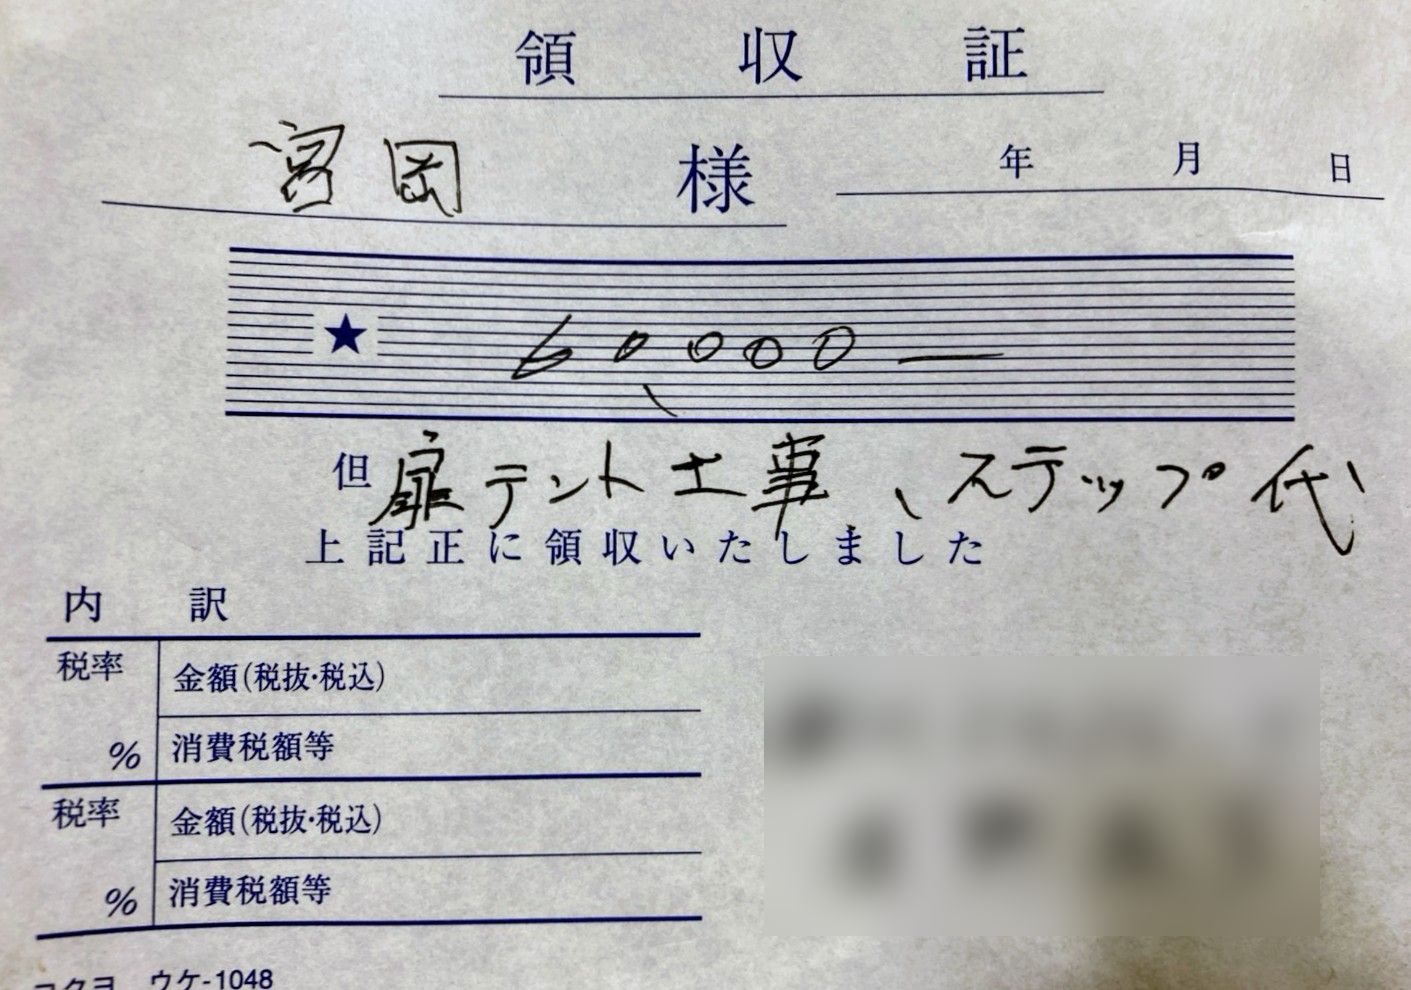 領収証
宮岡 様 年 月 日
★ 60,000―
但 扉テント工事、ステップ代
上記正に領収いたしました
内訳
税率 金額(税抜・税込)
% 消費税額等
税率 金額(税抜・税込)
% 消費税額等
コクヨ ウケ-1048